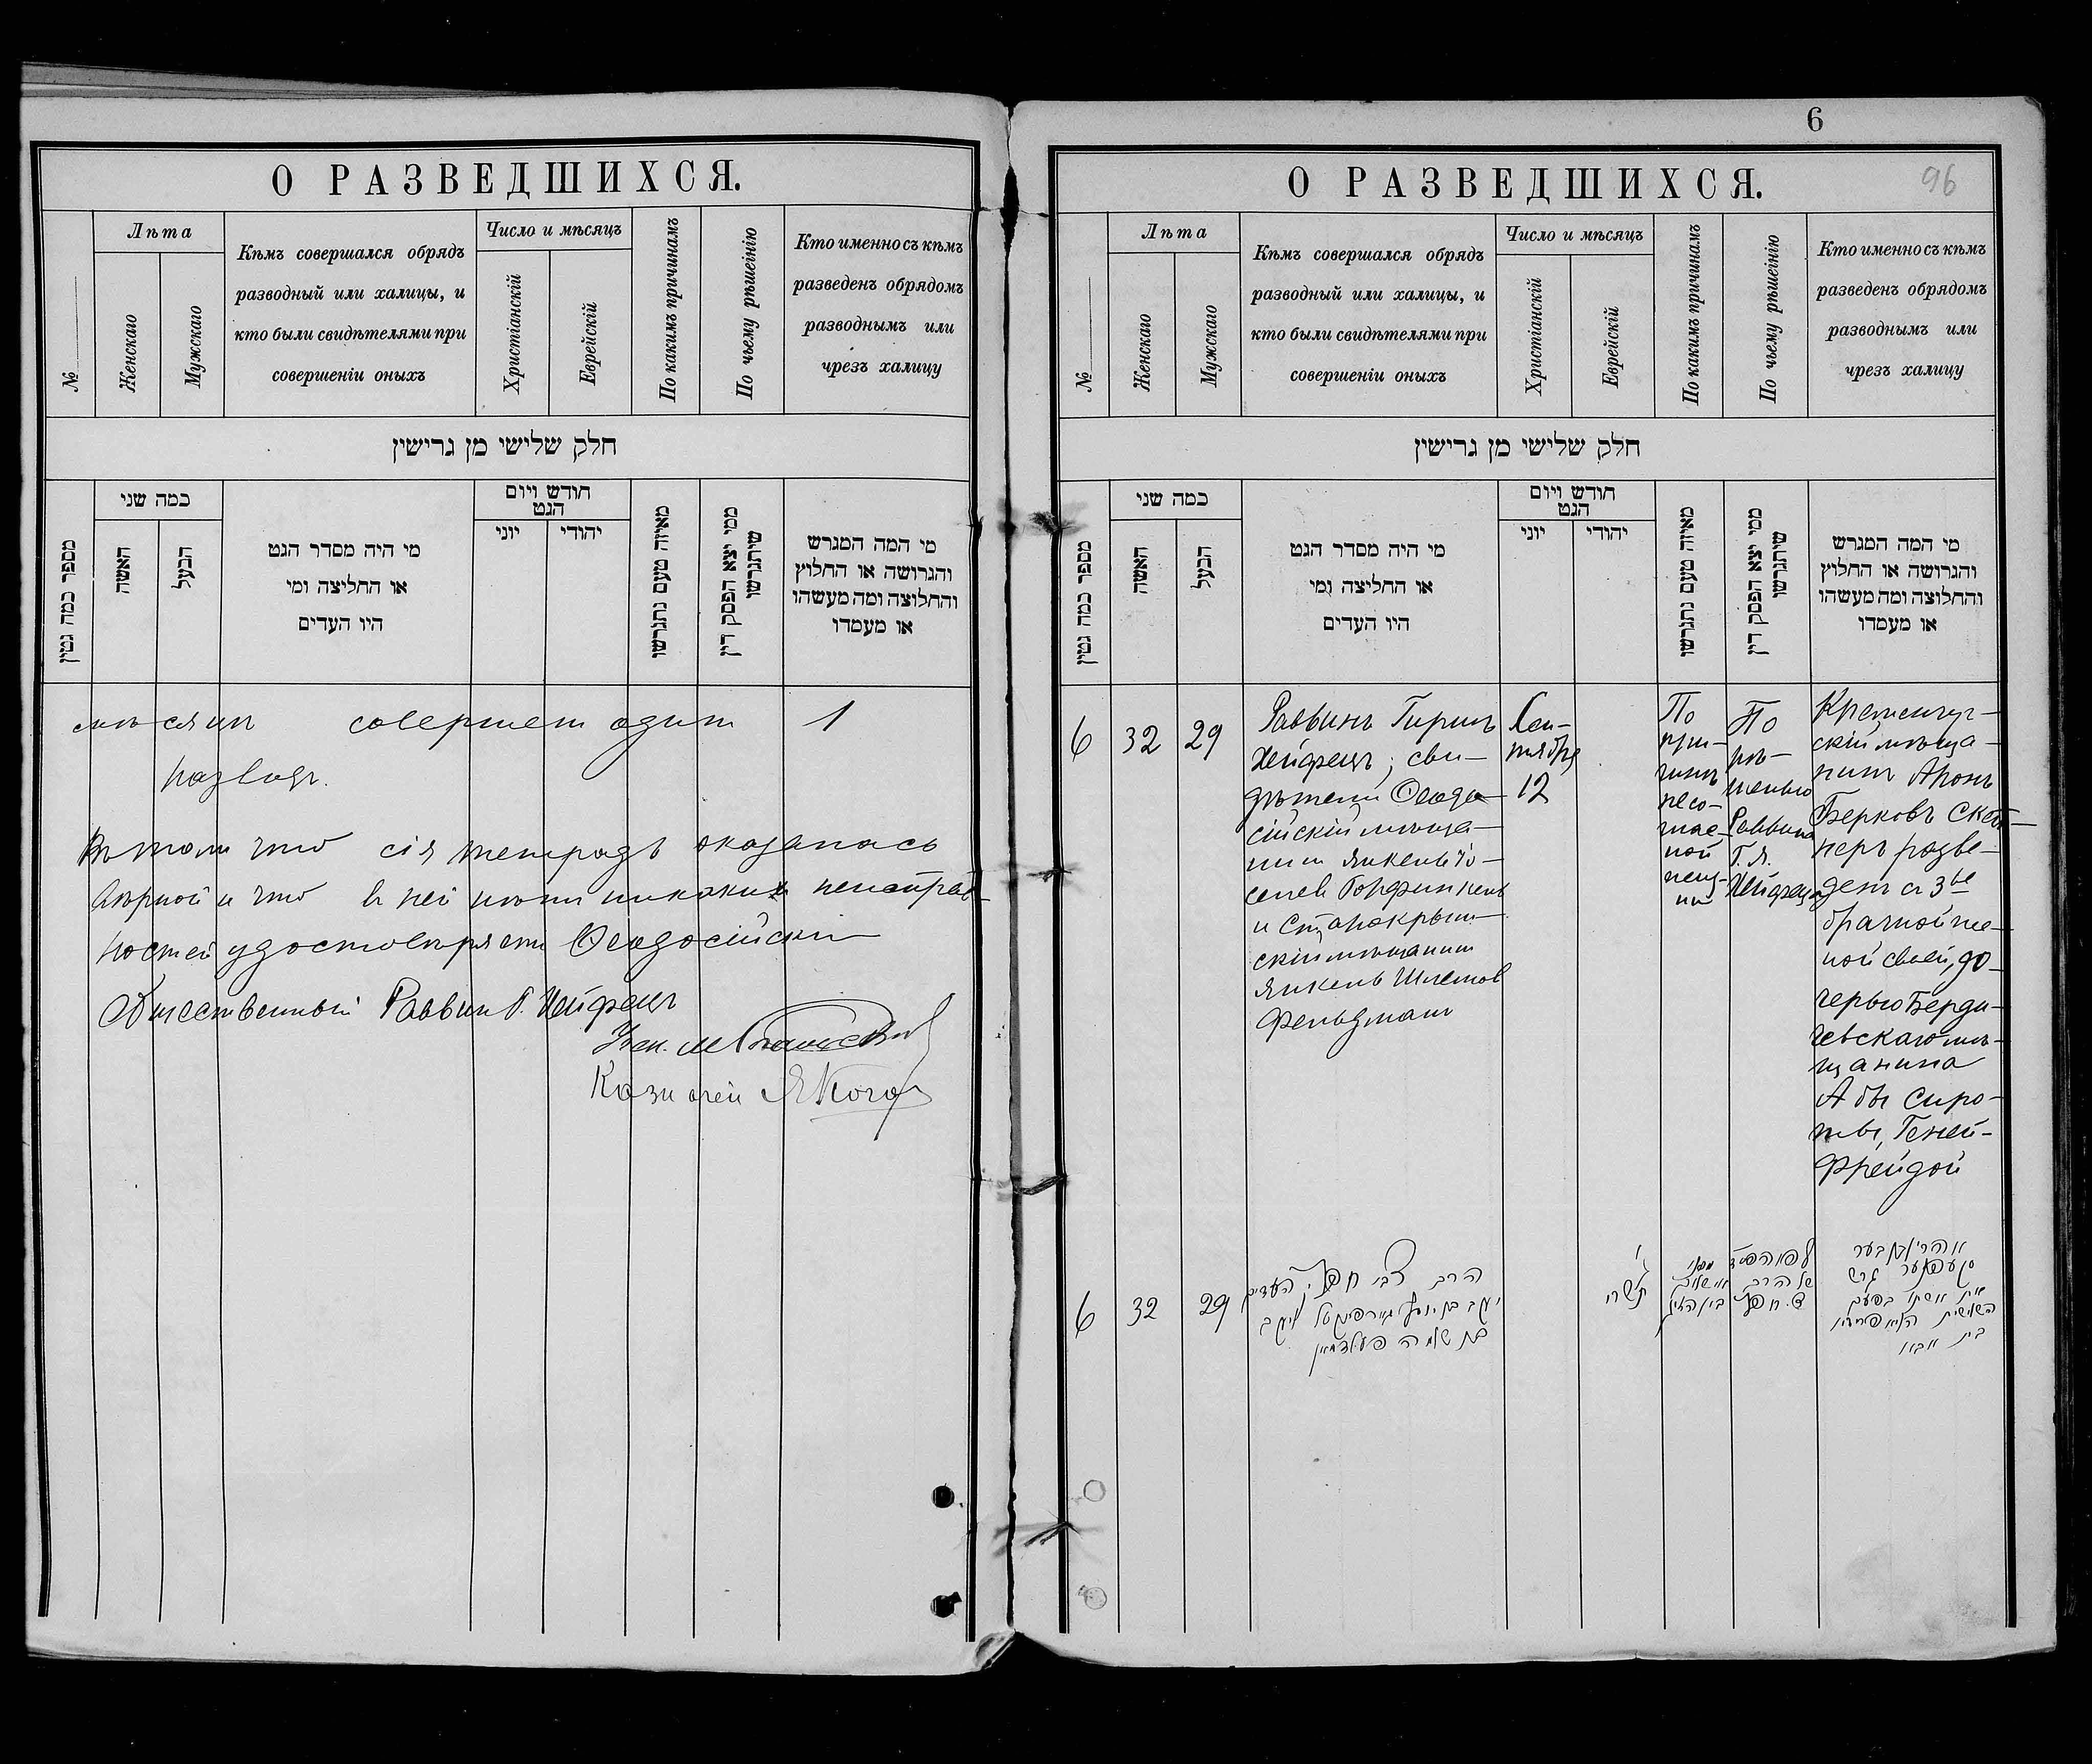 О РАЗВЕДШИХСЯ.
№
Лѣта
Женскаго
Мужскаго
Кѣмъ совершался обрядъ
разводный или халицы, и
кто были свидѣтелями при
совершеніи оныхъ
Число и мѣсяцъ
Христіанскій
Еврейскій
По какимъ причинамъ
По чьему рѣшеінію
Кто именно съ кѣмъ
разведенъ обрядомъ
разводнымъ или
чрезъ халицу
חלק שלישי מן גרישין
מספר כמה גטין
כמה שני
האשה
הבעל
מי היה מסדר הגט
או החליצה ומי
היו העדים
חודש ויום
הגט
יוני
יהודי
מאיזה טעם נתגרשו
ממי יצא הפסק דין
שיתגרשו
מי המה המגרש
והגרושה או החלוץ
והחלוצה ומה מעשהו
או מעמדו
мѣсяцѣ совершен один 1
развидъ.
Въ томъ что сія тетрадь оказалась
вѣрной и что в ней нѣтъ никаких неисправ-
ностей удостовѣряетъ Ѳеодосійскій
Общественный Раввин Г. Хейфецъ
Казначей Я Коган
6
96
О РАЗВЕДШИХСЯ.
№
Лѣта
Женскаго
Мужскаго
Кѣмъ совершался обрядъ
разводный или халицы, и
кто были свидѣтелями при
совершеніи оныхъ
Число и мѣсяцъ
Христіанскій
Еврейскій
По какимъ причинамъ
По чьему рѣшеінію
Кто именно съ кѣмъ
разведенъ обрядомъ
разводнымъ или
чрезъ халицу
חלק שלישי מן גרישין
מספר כמה גטין
כמה שני
האשה
הבעל
מי היה מסדר הגט
או החליצה ומי
היו העדים
חודש ויום
הגט
יוני
יהודי
מאיזה טעם נתגרשו
ממי יצא הפסק דין
שיתגרשו
מי המה המגרש
והגרושה או החלוץ
והחלוצה ומה מעשהו
או מעמדו
6
32
29
Раввинъ Гиршъ
Хейфецъ; сви-
дѣтели Ѳеодо-
сійскій мѣща-
нин Янкель Іо-
селев Горфинкель
и Старокрым-
скій мѣщанин
Янкель Шлемов
Фельдман
Сен-
тября
12
По
при-
чинѣ
несо-
глас-
ной
жиз-
ни
По
рѣ-
шенью
Раввина
Г. Я.
Хейфеца
Кременчуг-
скій мѣща-
нин Аронъ
Берковъ
неръ разве-
ден с 3ье
брачной же-
ной своей, до-
черью Берди-
чевскаго мѣ-
щанина
Абы Сиро-
ты, Геней-
Фрейдой
6
32
29
הרב צבי חפץ, העדים
יעקב בן יוסף גורפינקל ויעקב
בן שלמה פעלדמאן
י׳
תשרי
של הרב
צ. חפץ
גרש
את אשתו בפעם
השלישית
בית אבא